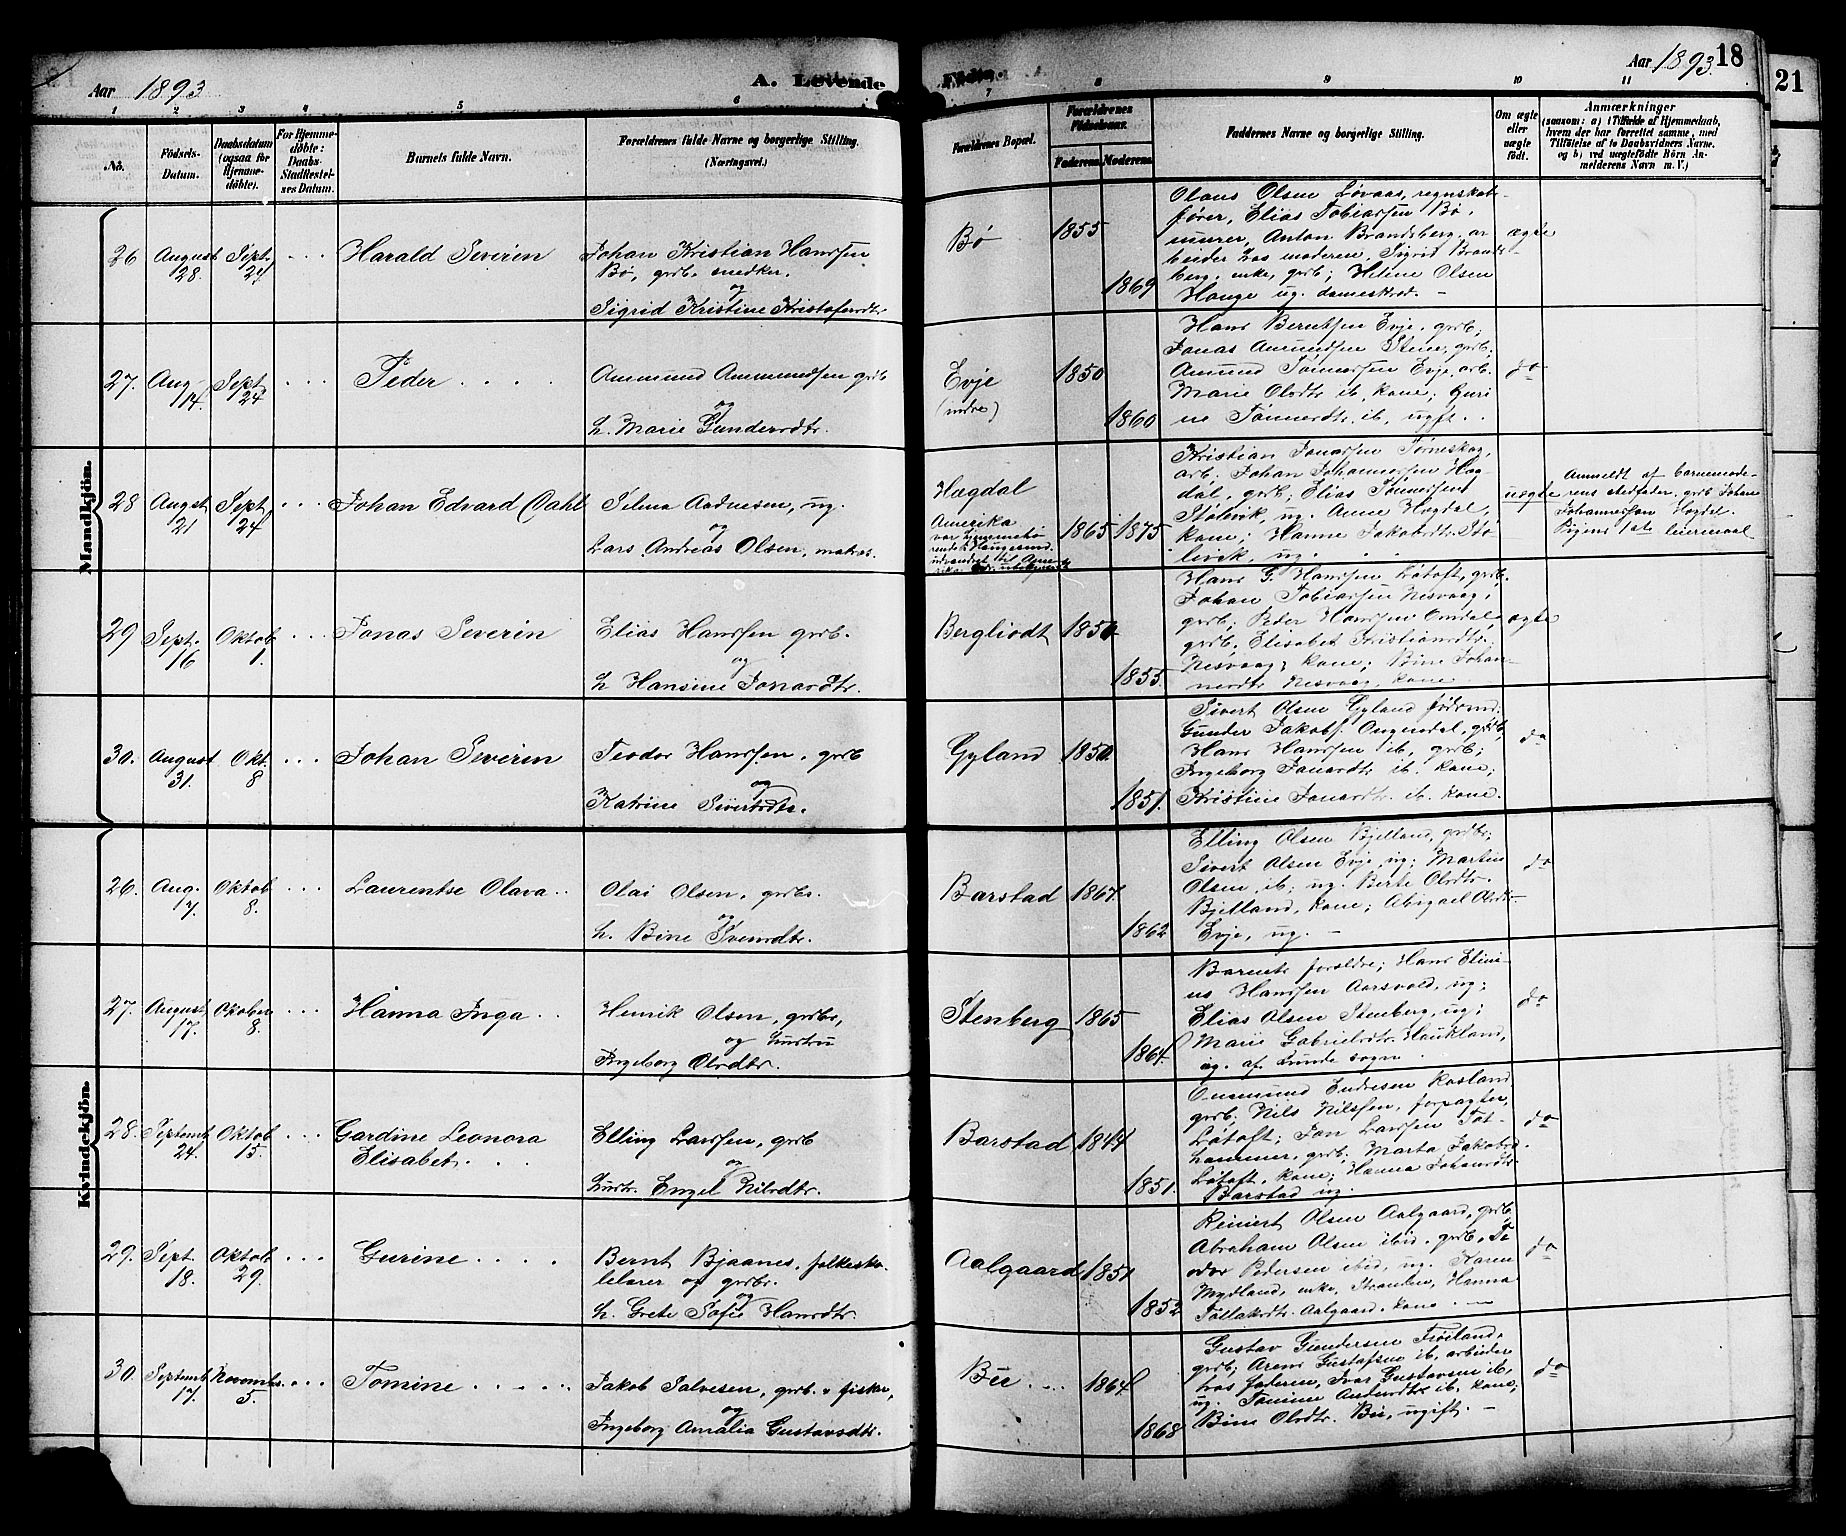 Aar 1893
A. Levende Födte.
Aar 1893. 18
21
1 2 3 4 5 6 7 8 9 10 11
No.
Födsels-
Datum.
Daabsdatum
(ogsaa for
Hjemme-
döbte).
For Hjemme-
döbte:
Daabs-
Stadfæstel-
ses Datum.
Barnets fulde Navn.
Forældrenes fulde Navne og borgerlige Stilling.
(Næringsvei.)
Forældrenes Bopæl.
Forældrenes
Födselsaar.
Faderens. Moderens.
Faddernes Navne og borgerlige Stilling.
Om ægte
eller
uægte
født.
Anmærkninger
(saasom: a) i Tilfælde af Hjemmedaab,
hvem der har forrettet samme, med
Tilföielse af to Daabsvidners Navne.
og b) ved uægtefödte Börn An-
melderens Navn m. V.)
Mandkjön.
26 August 28. Sept. 24 Harald Severin
Johan Kristian Hanssen
Bø, grb. snedker.
og
Sigrid Kristine Kristofersdtr
Bø 1855 1869
Olaus Olsen Løvaas, regnskab-
fører, Elias Tobiassen Bø,
murer, Anton Brandsberg, ar-
beider hos moderen, Sigrid Brands-
berg, enke, grb; Helene Olsen
Hauge ug. dameskræd. -
ægte
27. Aug. 14. Sept. 24 Peder
Ammund Ammundsen grb
og
h. Marie Gundersdtr.
Evje
(indre)
1850 1860
Hans Berntsen Evje, grb;
Jonas Aumundsen Stene, grb;
Amund Tønnessen Evje, arb.
Marie Olsdtr ib, kone; Guri-
ne Tønnesdtr. ib, ugift.
do
28 August 21 Sept. 24 Johan Edvard (Dahl
Selma Aadnesen, ug.
og
Lars Andreas Olsen, matros.
Hægdal
Amerika
var hjemmehø
rende i Haugesund.
udvandret til Ame-
1865 1875
Kristian Jonassen Tørneskog,
arb. Johan Johannessen Hæg-
dal, grb; Elias Tønnessen
Stølsvik, ug. Anne Hægdal,
kone; Hanne Jakobsdtr. Stø-
lsvik, ug.
uægte
Anmeldt af barnemode-
rens stedfader, grb Johan
Johannessen Hægdal.
Pigens 1ste leiermaal
29 Sept. 16 Oktob. 1. Jonas Severin
Elias Hanssen grb.
og
h Hansine Jonasdtr.
Bergliodt 1855.
Hans G. Hanssen Løtoft, grb.
Johan Tobiassen Nesvaag,
grb; Peder Hanssen Omdal,
grb, Elisabet Kristiansdtr.
Nesvaag, kone; Bine Johan-
nesdtr Nesvaag, kone
ægte
30. August 31. Okt. 8 Johan Severin
Teodor Hanssen, grb
og
Katrine Sivertsdtr.
Gyland 1850 1851.
Sivert Olsen Gyland føderaad;
Gunder Jakobs. Ougendal, grb,
Hans Hanssen ib, grb;
Ingeborg Jonasdtr ib. kone;
Kristine Jonasdtr. ib. kone.
do
Kvindekjön.
26. Aug. 7. Oktob 8. Laurentse Olava
Olai Olsen, grbr.
og
h. Bine Svensdtr.
Barstad 1867. 1862
Elling Olsen Bjelland, grbr;
Sivert Olsen Evje, ug; Martin
Olsen, ib; ug. Berte Olsdtr.
Bjelland, kone; Abigael Olsdtr
Evje, ug. -
do
27. August, 17. Oktober 8. Hanna Inga
Henrik Olsen, grbr,
og hustru
Ingeborg Olsdtr.
Stenberg 1865 1864.
Barnets forældre; Hans Elini-
us Hanssen Aarsvold, ug;
Elias Olsen Stenberg, ug;
Marie Gabrielsdtr. Haukland,
ug. af Lunde sogn
do
28. Septemb. 24. Oktob 15. Gardine Leonora
Elisabet
Elling Larssen, grb
og
hustr. Engel Nilsdtr.
Barstad 1851.
Omund Endresen Rosland
grb; Nils Nilssen, forpagter,
Løtoft; Jon Larssen Tot-
lammer, grb; Marta Jakobsd.
Løtoft, kone; Hanna Johansdtr.
Barstad ug.
do
29. Sept. 18. Oktob 29. Gurine
Bernt Bjaanes, folkesko-
lelærer og grbr.
og
h. Grete Sofie Hansdtr.
Aalgaard 1851 1852
Reinert Olsen Aalgaard, grb
Abraham Olsen ibid, grb, Te-
odor Pedersen ibid, ug. Karen
Mydland, enke, Stranden, Hanna
Tollaksdtr. Aalgaard, kone
do
30. Septemb. 17. Novembr. 5. Tomine
Jakob Salvesen, grb. & fisker,
og
Ingeborg Amalia Gustavsdtr.
Bu 1864 1868
Gustav Gundersen Frøiland,
grb; Arent Gustafsen ib, arbeider
hos faderen, Ivar Gustavsen ib,
ug. Tomine Andersdtr ib. kone;
Bine Olsdtr. Bu, ugift. -
do